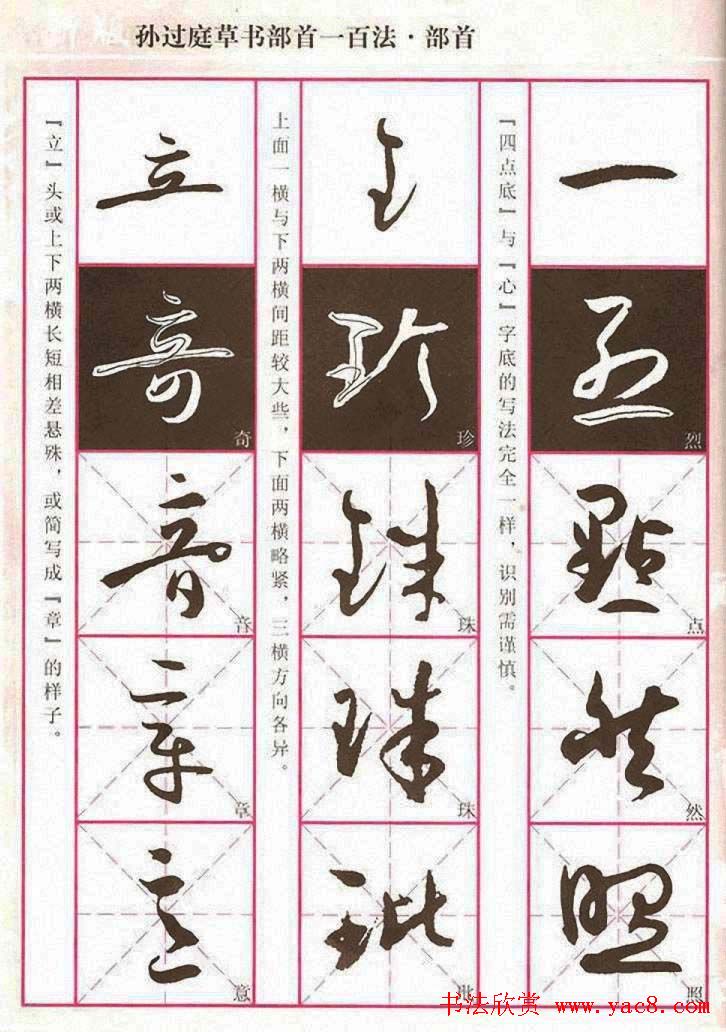 孙过庭草书部首一百法·部首
一
烈
点
然
照
『四点底』与『心』字底的写法完全一样，识别需谨慎。
珍
珠
珠
上面一横与下两横间距较大些，下面两横略紧，三横方向各异。
立
奇
音
章
意
『立』头或上下两横长短相差悬殊，或简写成『章』的样子。
书法欣赏 www.yac8.com